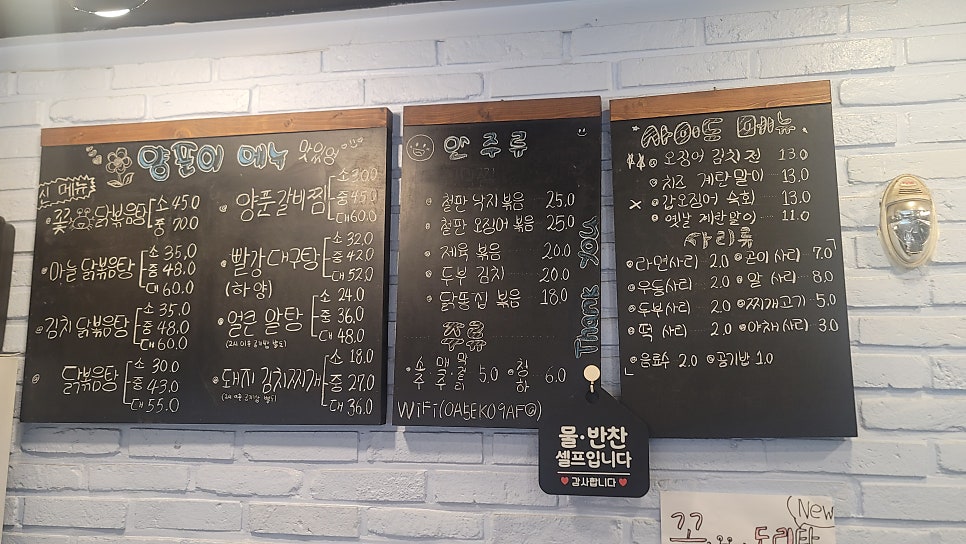 양푼이 메뉴 맛있엉
신 메뉴
꽃 닭볶음탕 소 45.0
중 70.0
마늘 닭볶음탕 소 35.0
중 48.0
대 60.0
김치 닭볶음탕 소 35.0
중 48.0
대 60.0
닭볶음탕 소 30.0
중 43.0
대 55.0
양푼갈비찜 소 30.0
중 45.0
대 60.0
빨강 대구탕 소 32.0
(하양) 중 42.0
대 52.0
얼큰 알탕 소 24.0
중 36.0
대 48.0
돼지 김치찌개 소 18.0
중 27.0
대 36.0
안주류
철판 낙지볶음 25.0
철판 오징어 볶음 25.0
제육 볶음 20.0
두부 김치 20.0
닭똥집 볶음 18.0
주류
소주 맥주 막걸리 5.0 청하 6.0
WiFi(0A5EK09AF@)
Thank you
사이드 메뉴
오징어 김치전 13.0
치즈 계란말이 13.0
x 갑오징어 숙회 13.0
옛날 계란말이 11.0
사리류
라면사리 2.0 곤이 사리 7.0
우동사리 2.0 알 사리 8.0
두부사리 2.0 찌개고기 5.0
떡 사리 2.0 야채사리 3.0
음료수 2.0 공기밥 1.0
물·반찬
셀프입니다
감사합니다
New